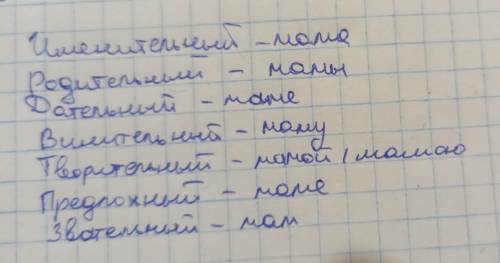 Именительный – мама
Родительный – мамы
Дательный – маме
Винительный – маму
Творительный – мамой / мамою
Предложный – маме
Звательный – мам